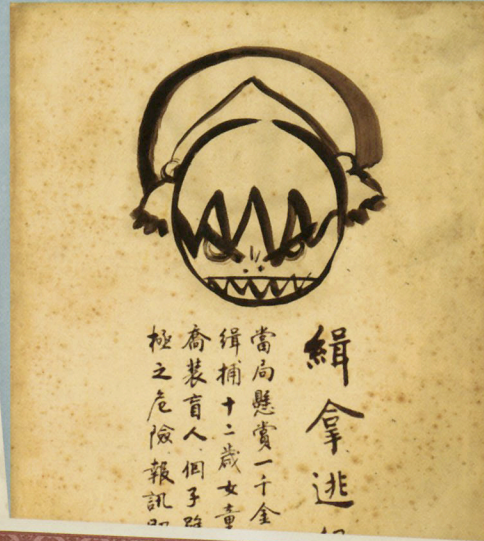 緝拿逃
當局懸賞一千金
緝捕十二歲女童
喬裝盲人、個子
極之危險報訊